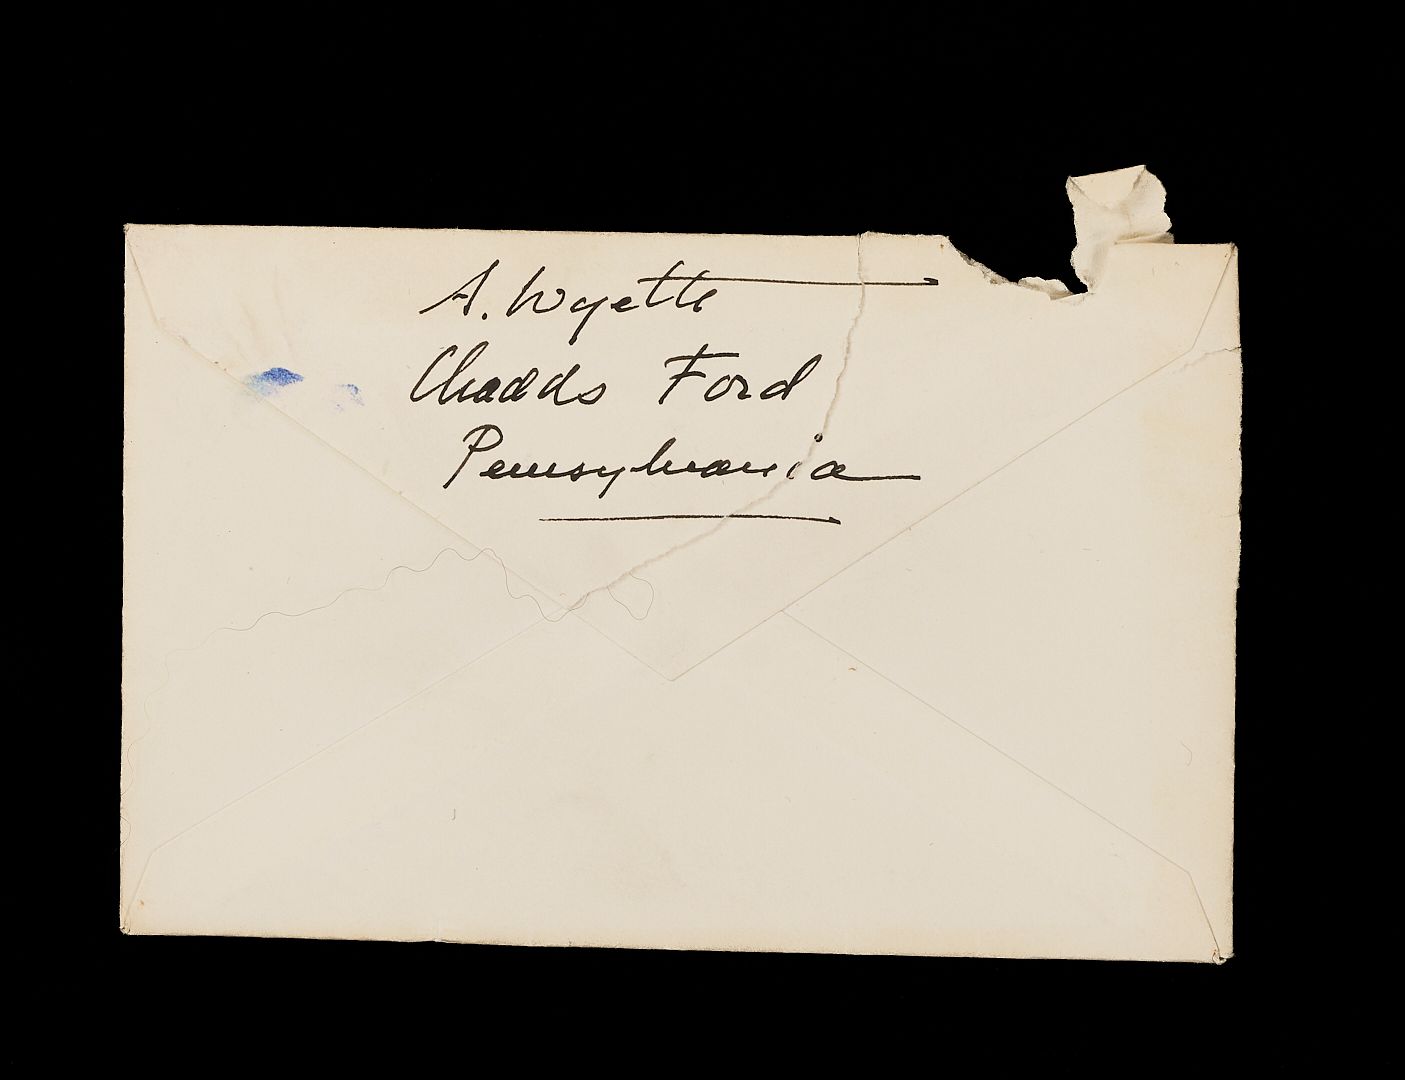 A. Wyeth
Chadds Ford
Pennsylvania